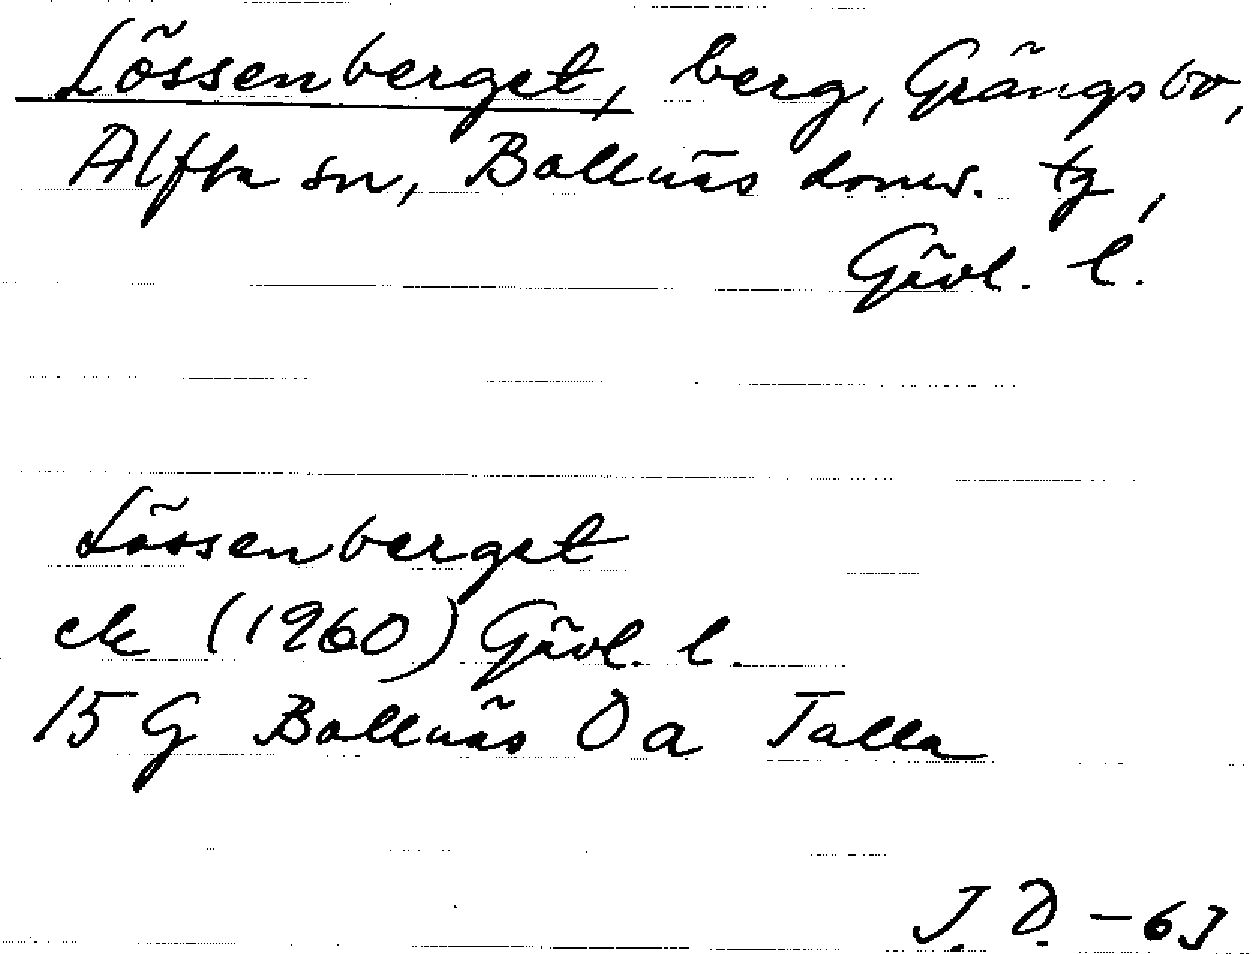 Lössenberget, berg, Grängsbo,
Alfta sn, Bollnäs doms. tg,
Gävl. l.
Lössenberget
ek (1960) Gävl. l.
15 G Bollnäs 0 a Talla
J. D. - 63